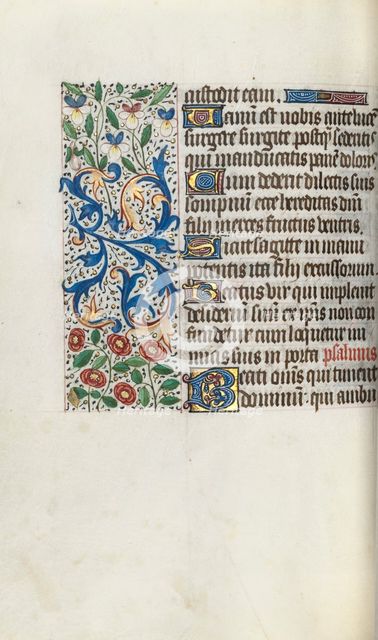 custodit eam.
Vanū est vobis ante lucē
surgere surgite postq̄ sederitis
qui manducatis panē doloris
Cum dederit dilectis suis
sompnum ecce hereditas dn̄i
filij merces fructus ventris.
Sicut sagitte in manu
potentis ita filij excussorum.
Beatus vir qui implevit
desideriū suū ex ipīs non con
fundetur cum loquetur ini
micis suis in porta psalmus
Beati om̄s qui timent
dominū· qui ambu